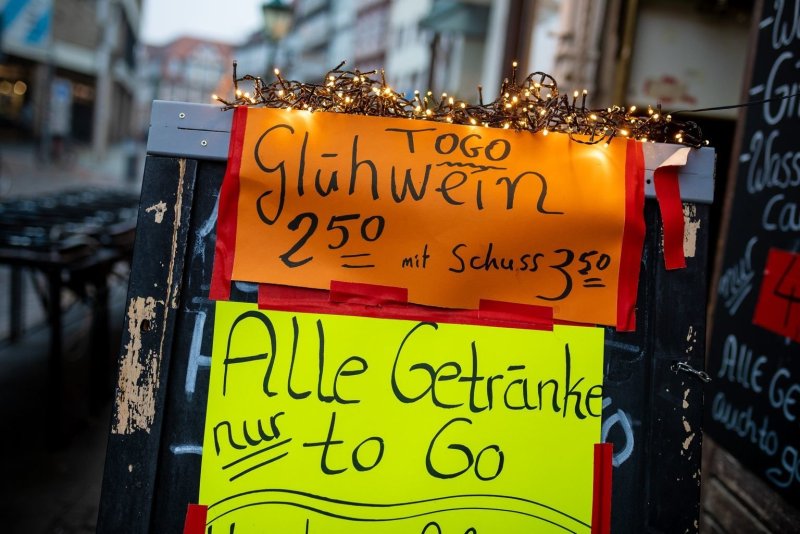 TOGO
Glühwein
2 50 mit Schuss 3 50
Alle Getränke
nur to Go
nur
Alle Ge
auch to go